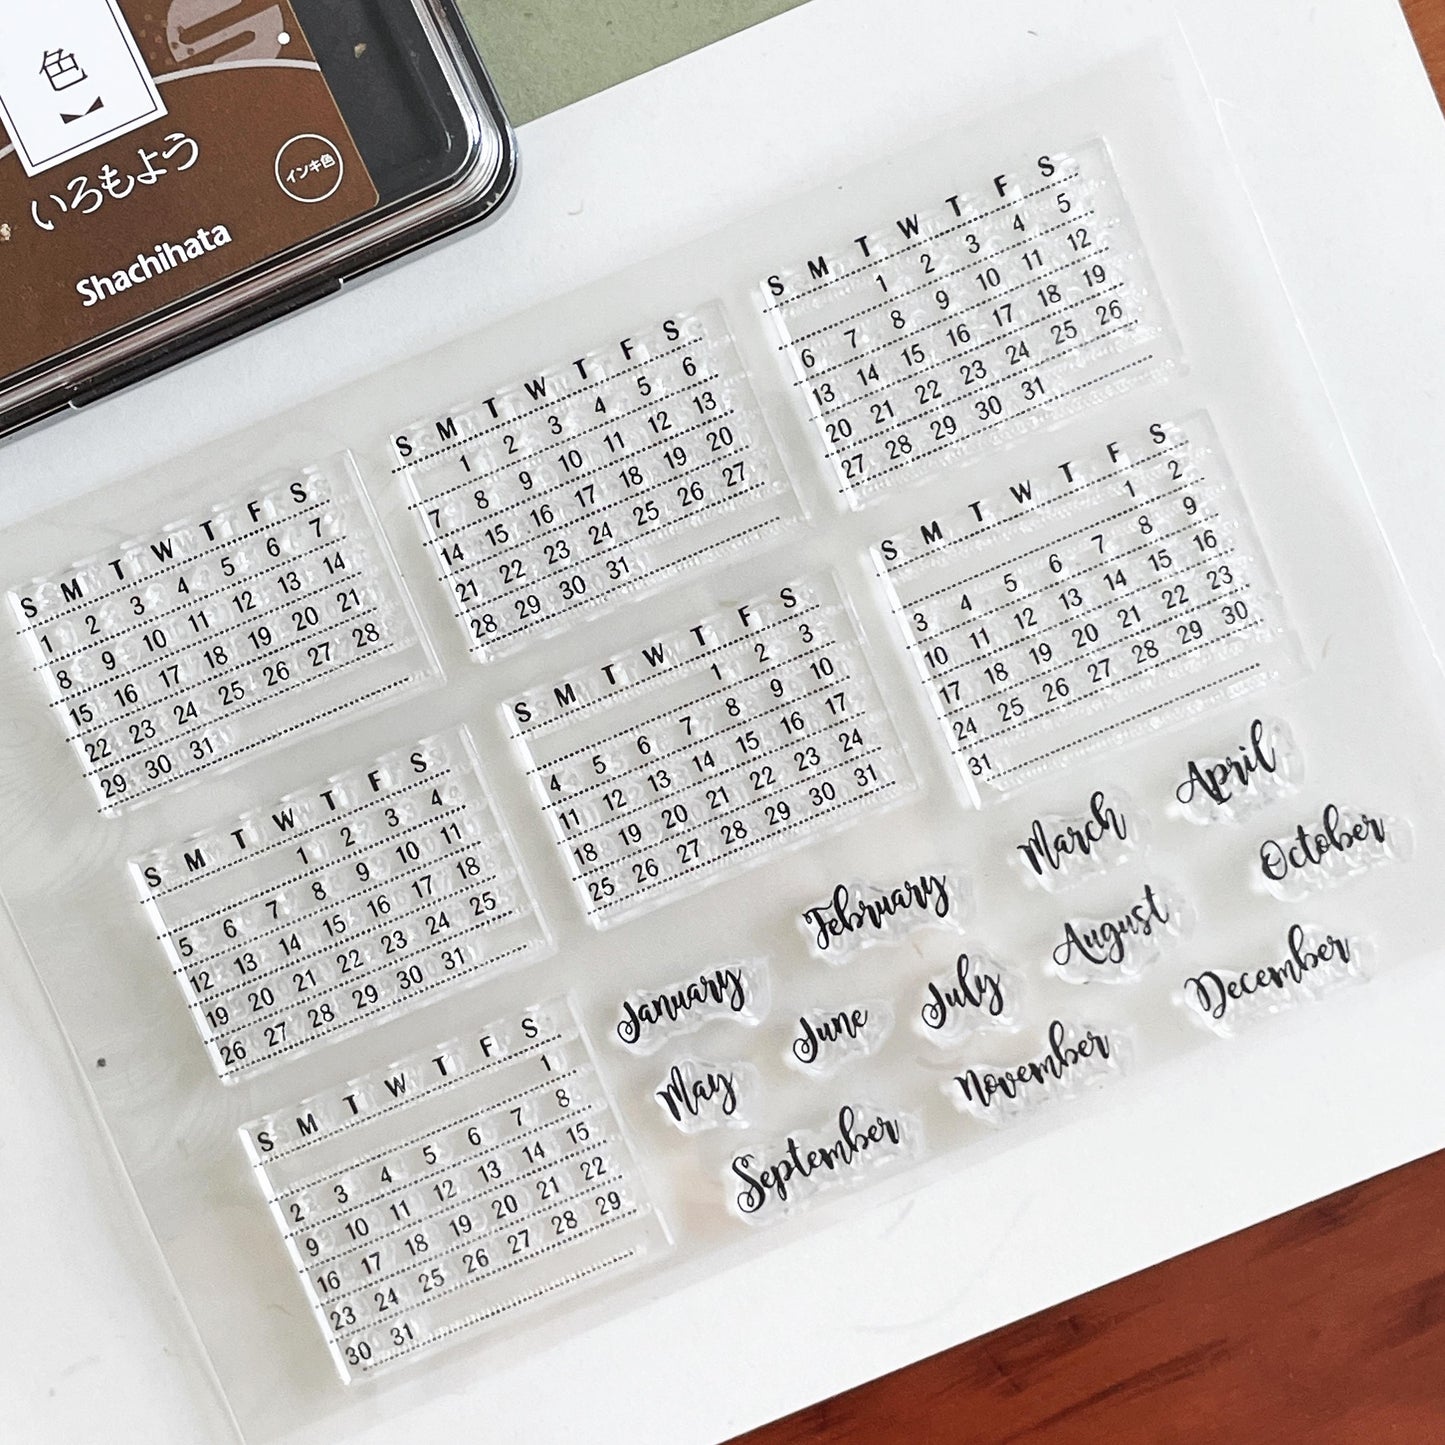 色
いろもよう
インキ色
Shachihata
S M T W T F S
1 2 3 4 5
6 7 8 9 10 11 12
13 14 15 16 17 18 19
20 21 22 23 24 25 26
27 28 29 30 31
S M T W T F S
1 2 3 4 5 6
7 8 9 10 11 12 13
14 15 16 17 18 19 20
21 22 23 24 25 26 27
28 29 30 31
S M T W T F S
1 2 3 4 5 6 7
8 9 10 11 12 13 14
15 16 17 18 19 20 21
22 23 24 25 26 27 28
29 30 31
S M T W T F S
1 2
3 4 5 6 7 8 9
10 11 12 13 14 15 16
17 18 19 20 21 22 23
24 25 26 27 28 29 30
31
S M T W T F S
1 2 3
4 5 6 7 8 9 10
11 12 13 14 15 16 17
18 19 20 21 22 23 24
25 26 27 28 29 30 31
S M T W T F S
1 2 3 4
5 6 7 8 9 10 11
12 13 14 15 16 17 18
19 20 21 22 23 24 25
26 27 28 29 30 31
S M T W T F S
1
2 3 4 5 6 7 8
9 10 11 12 13 14 15
16 17 18 19 20 21 22
23 24 25 26 27 28 29
30 31
January February March April
May June July August October
September November December